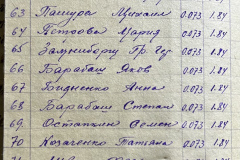 63 Пашура Михаил 0.073 1.84
64 Ястрова Мария 0.073 1.84
65 0.073 1.84
66 Барабаш Яков 0.073 1.84
67 Бидненко Анна 0.073 1.84
68 Барабаш Степан 0.073 1.84
69 Остапкин Семен 0.073 1.84
70 Козаченко Татьяна 0.073 1.84